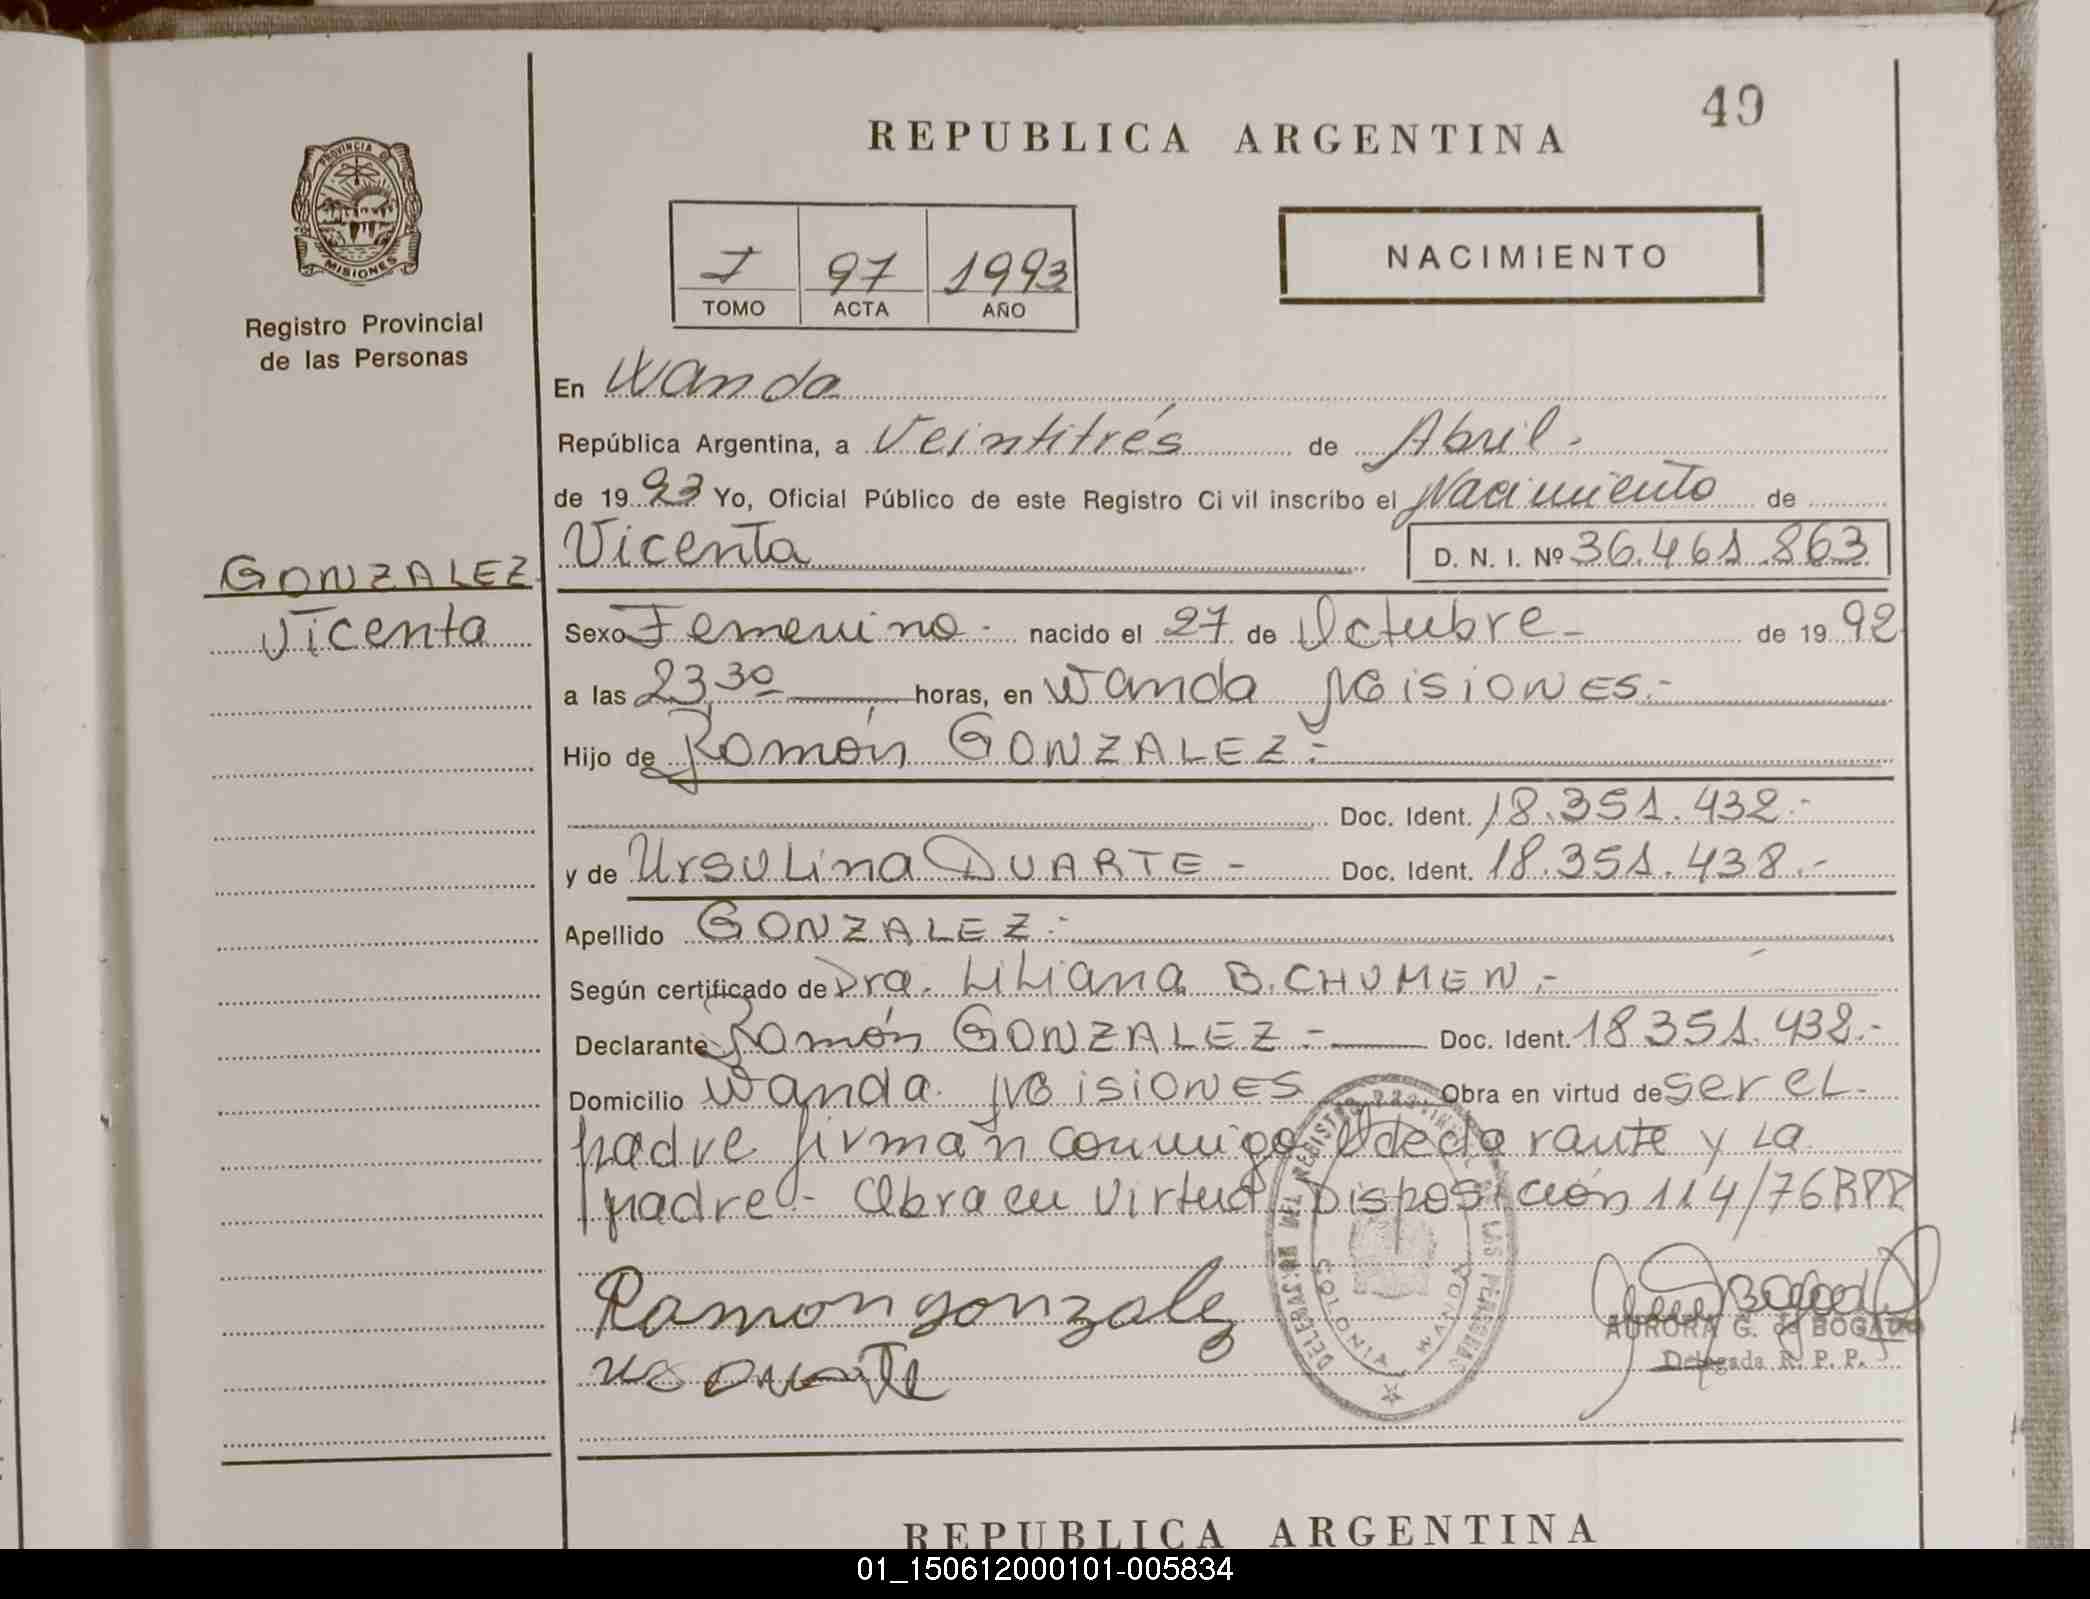 49
REPUBLICA ARGENTINA
PROVINCIA DE
MISIONES
Registro Provincial
de las Personas
I 97 1993
TOMO ACTA AÑO
NACIMIENTO
En Wanda
República Argentina, a Veintitrés de Abril.
de 1993 Yo, Oficial Público de este Registro Civil inscribo el Nacimiento de
Vicenta D. N. I. Nº 36.461.863
GONZALEZ
Vicenta
Sexo Femenino - nacido el 27 de Octubre - de 1992
a las 23,30 horas, en Wanda Misiones.-
Hijo de Ramón GONZALEZ.-
Doc. Ident. 18.351.432.-
y de Ursulina DUARTE - Doc. Ident. 18.351.438.-
Apellido GONZALEZ.-
Según certificado de Dra. Liliana B. CHUMEN.-
Declarante Ramón GONZALEZ - Doc. Ident. 18351.432.-
Domicilio Wanda. Misiones Obra en virtud de ser el
padre firman conmigo el declarante y la
madre - Obra en virtud Disposición 114/76 RPP
DELEGACION DEL REGISTRO PROVINCIAL DE LAS PERSONAS
COLONIA WANDA
Ramon gonzalez
AURORA G. de BOGADO
Delegada R. P. P.
REPUBLICA ARGENTINA
01_150612000101-005834